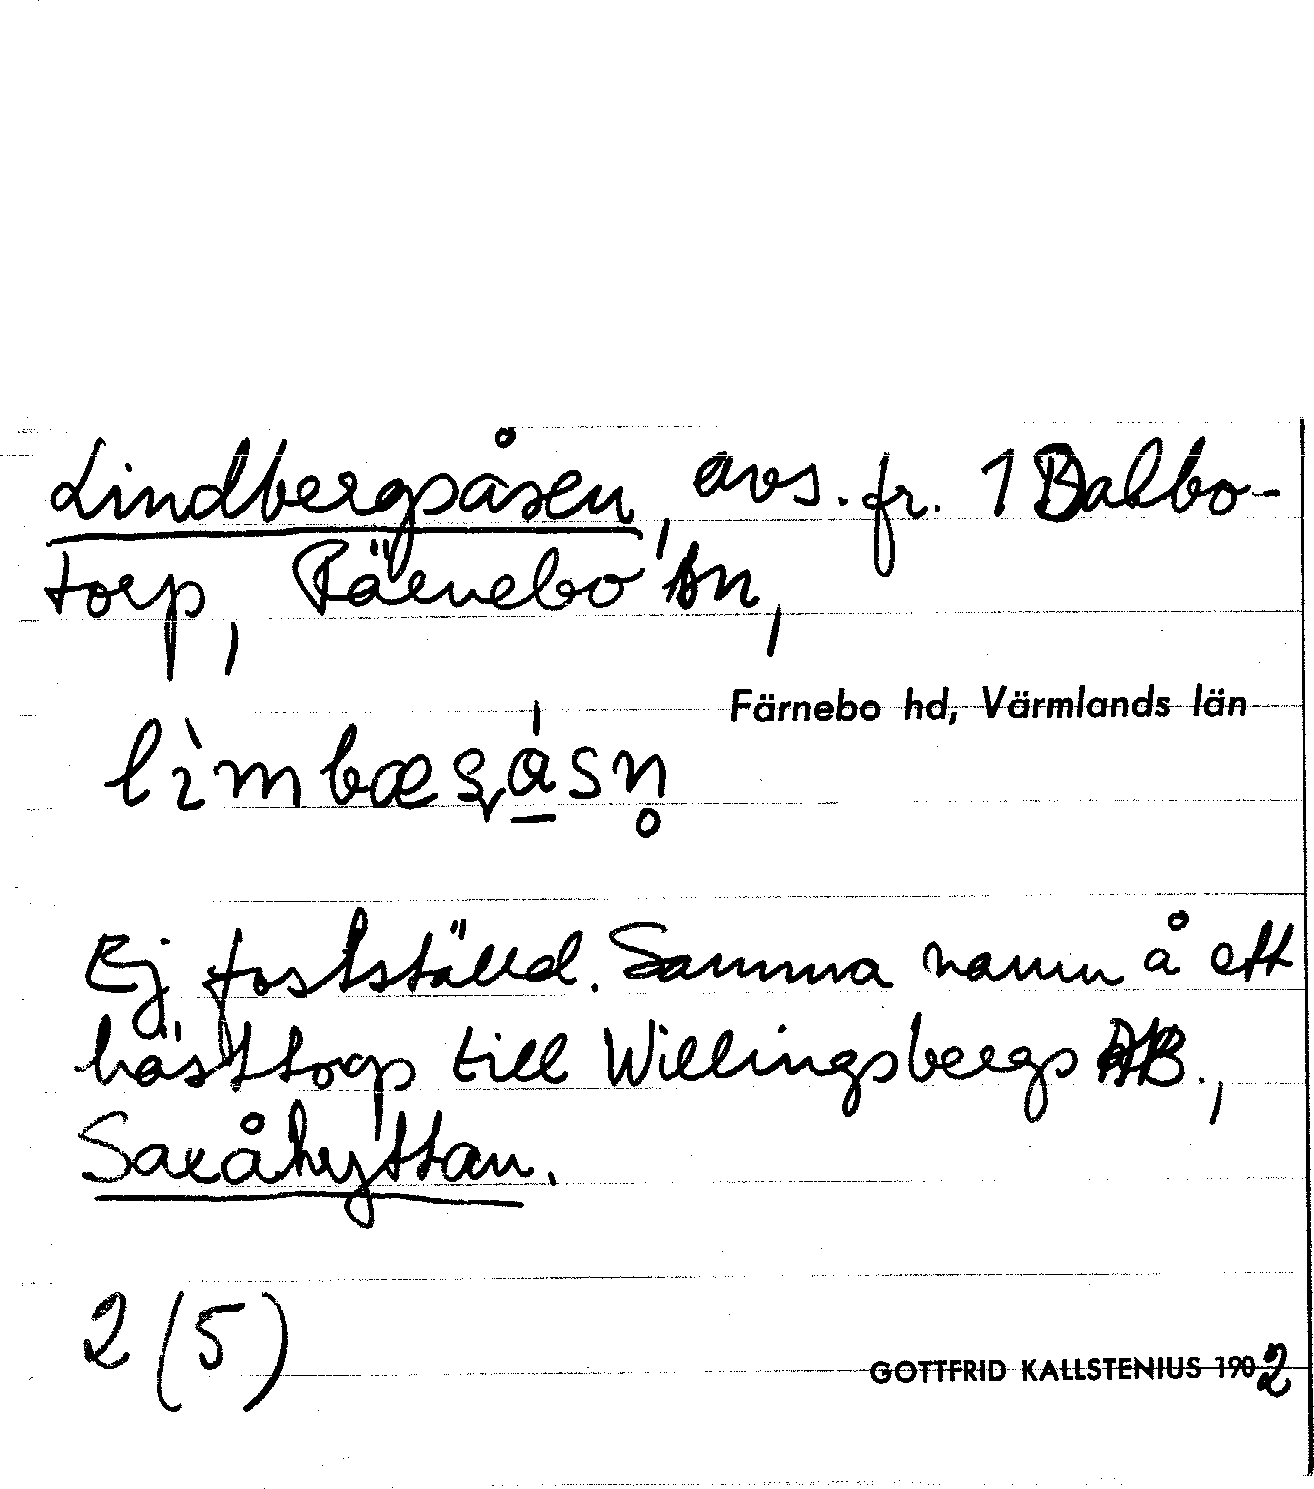 Lindbergsåsen, avs. fr. 1 Dalbo-
torp, Färnebo sn,
Färnebo hd, Värmlands län
Ej fastställd. Samma namn å ett
hästtorp till Willingsbergs AB.,
Saxåhyttan.
2 (5)
GOTTFRID KALLSTENIUS 1902